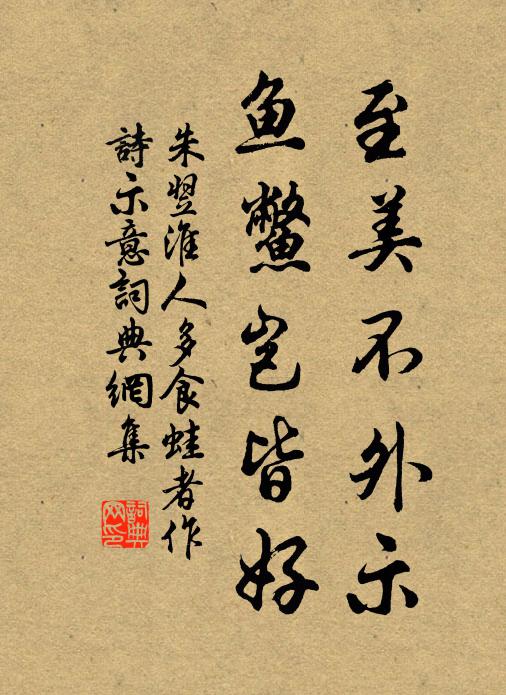 至美不外示
鱼鳖岂皆好
朱翌淮人多食蛙者作
詩示意詞典網集
詞典网印